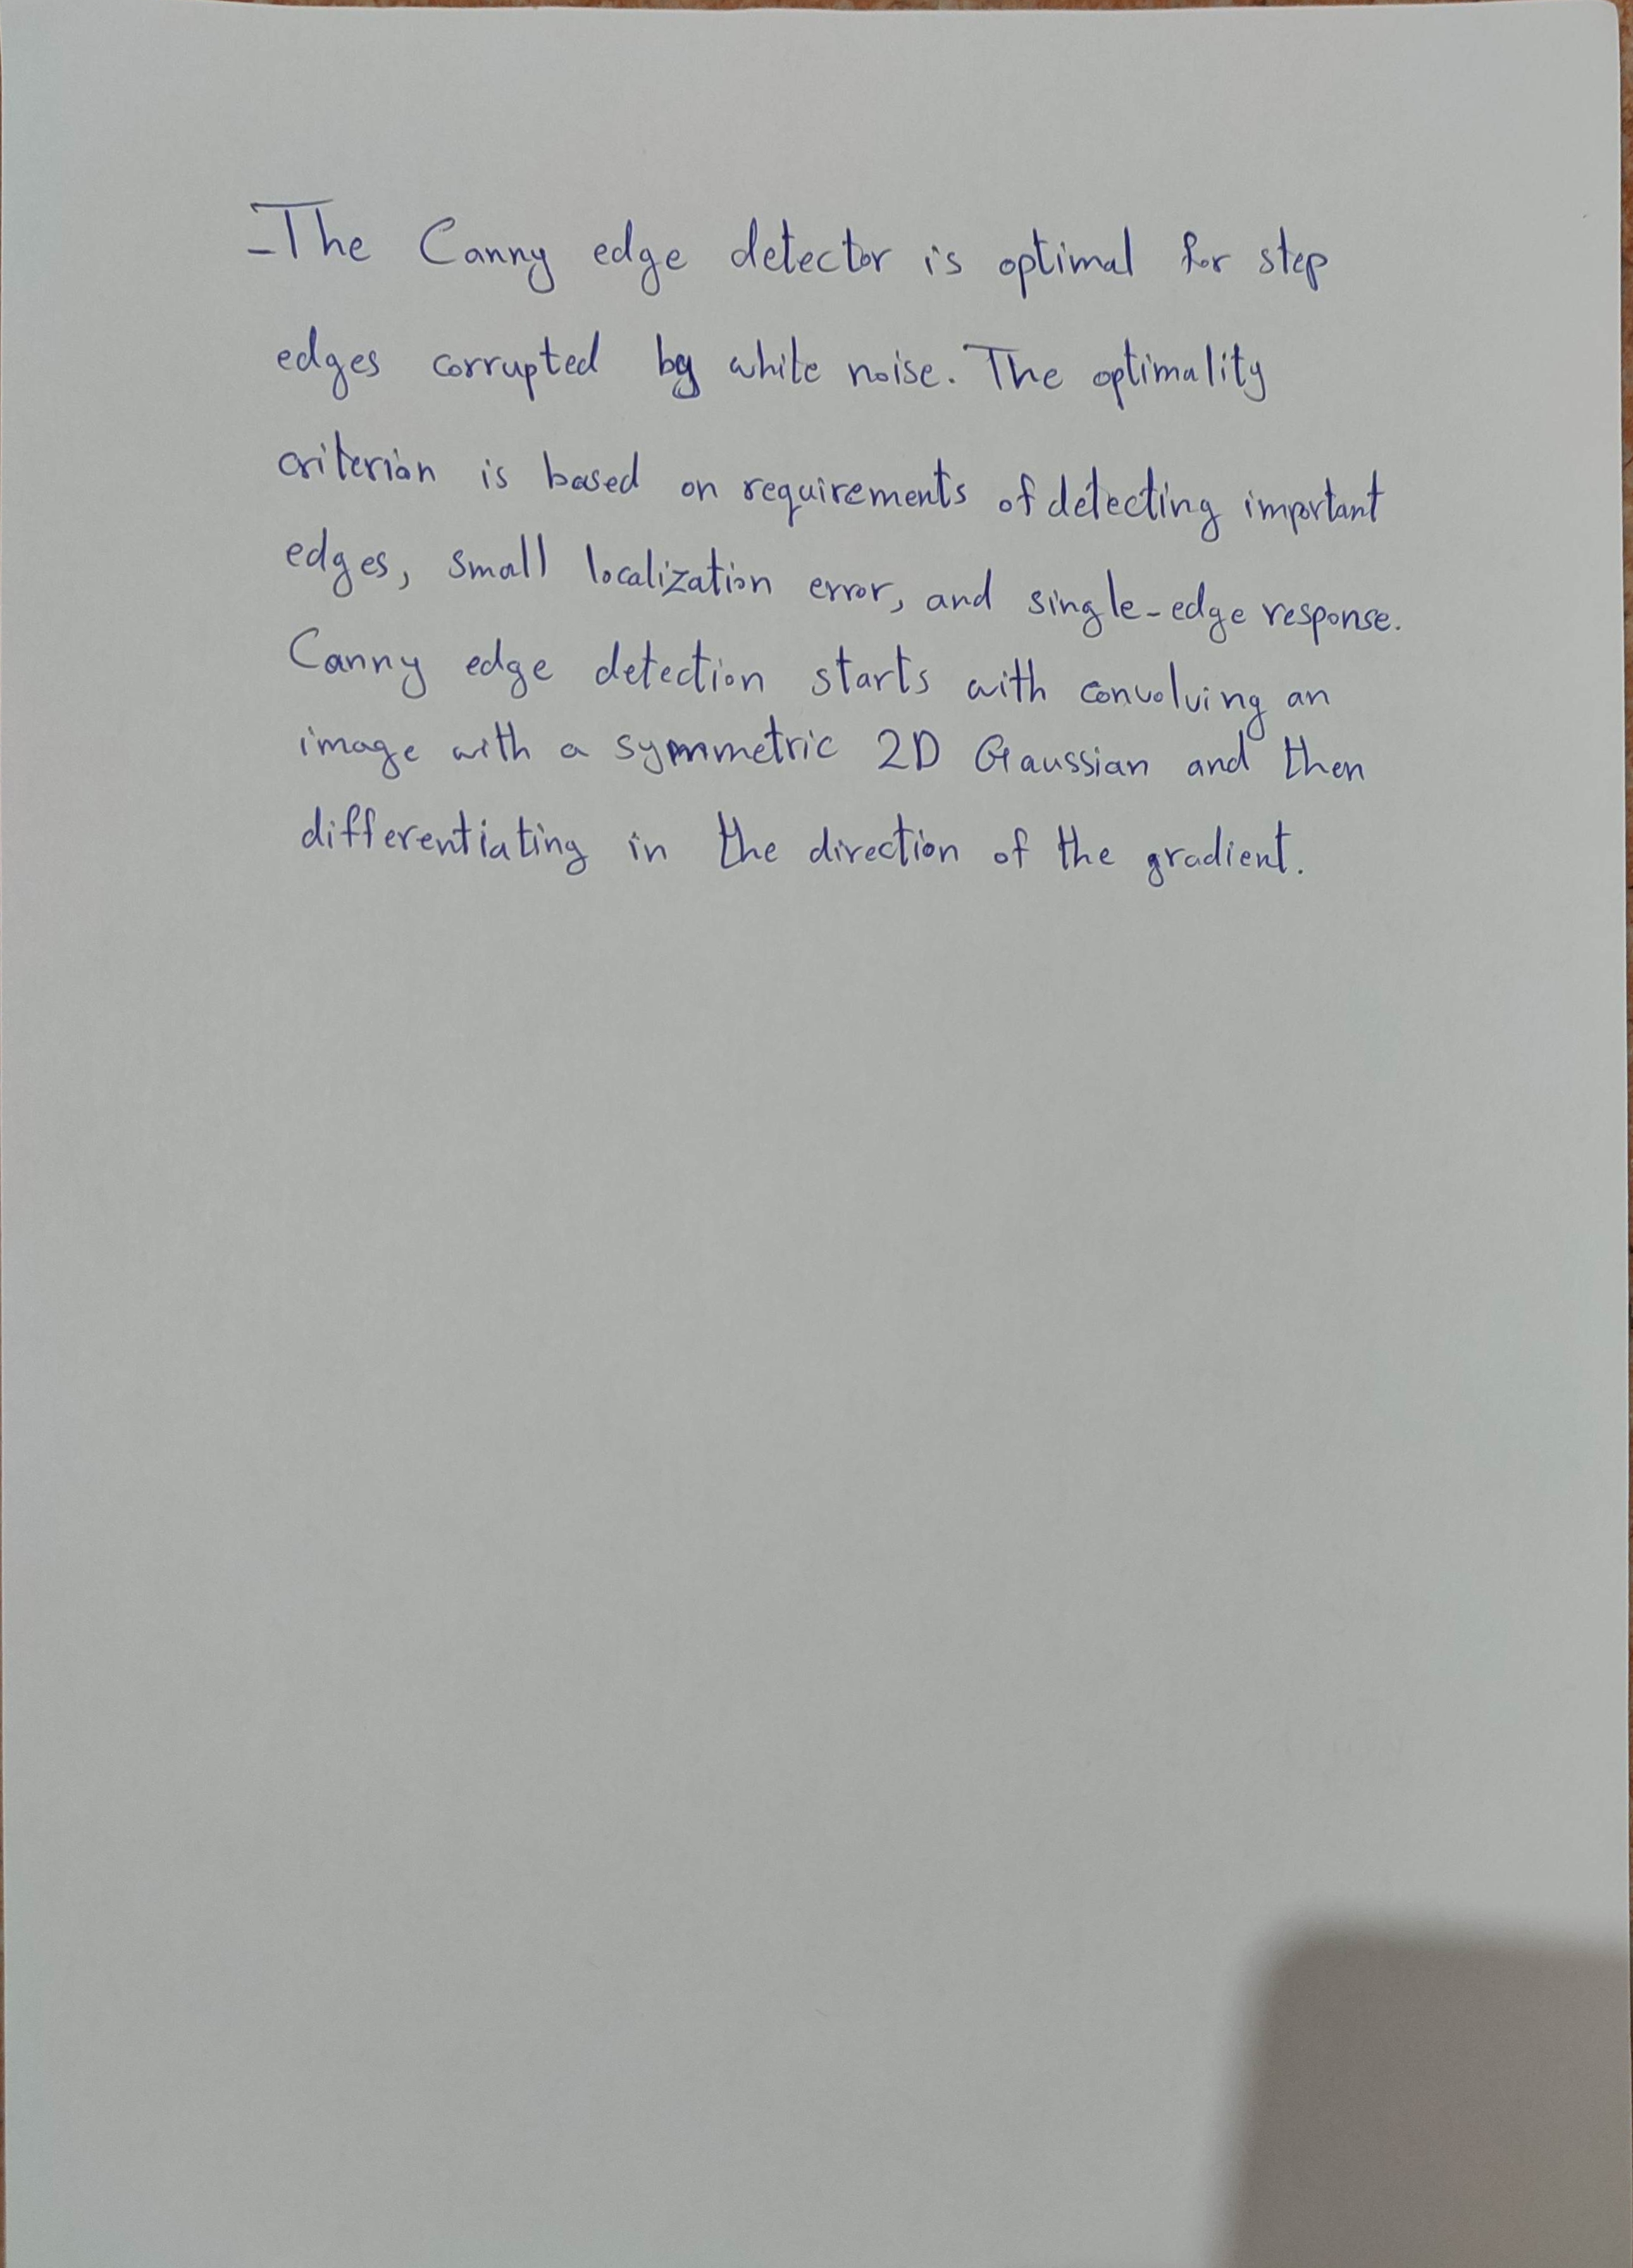 -The Canny edge detector is optimal for step
edges corrupted by white noise. The optimality
criterion is based on requirements of detecting important
edges, small localization error, and single-edge response.
Canny edge detection starts with convolving an
image with a symmetric 2D Gaussian and then
differentiating in the direction of the gradient.